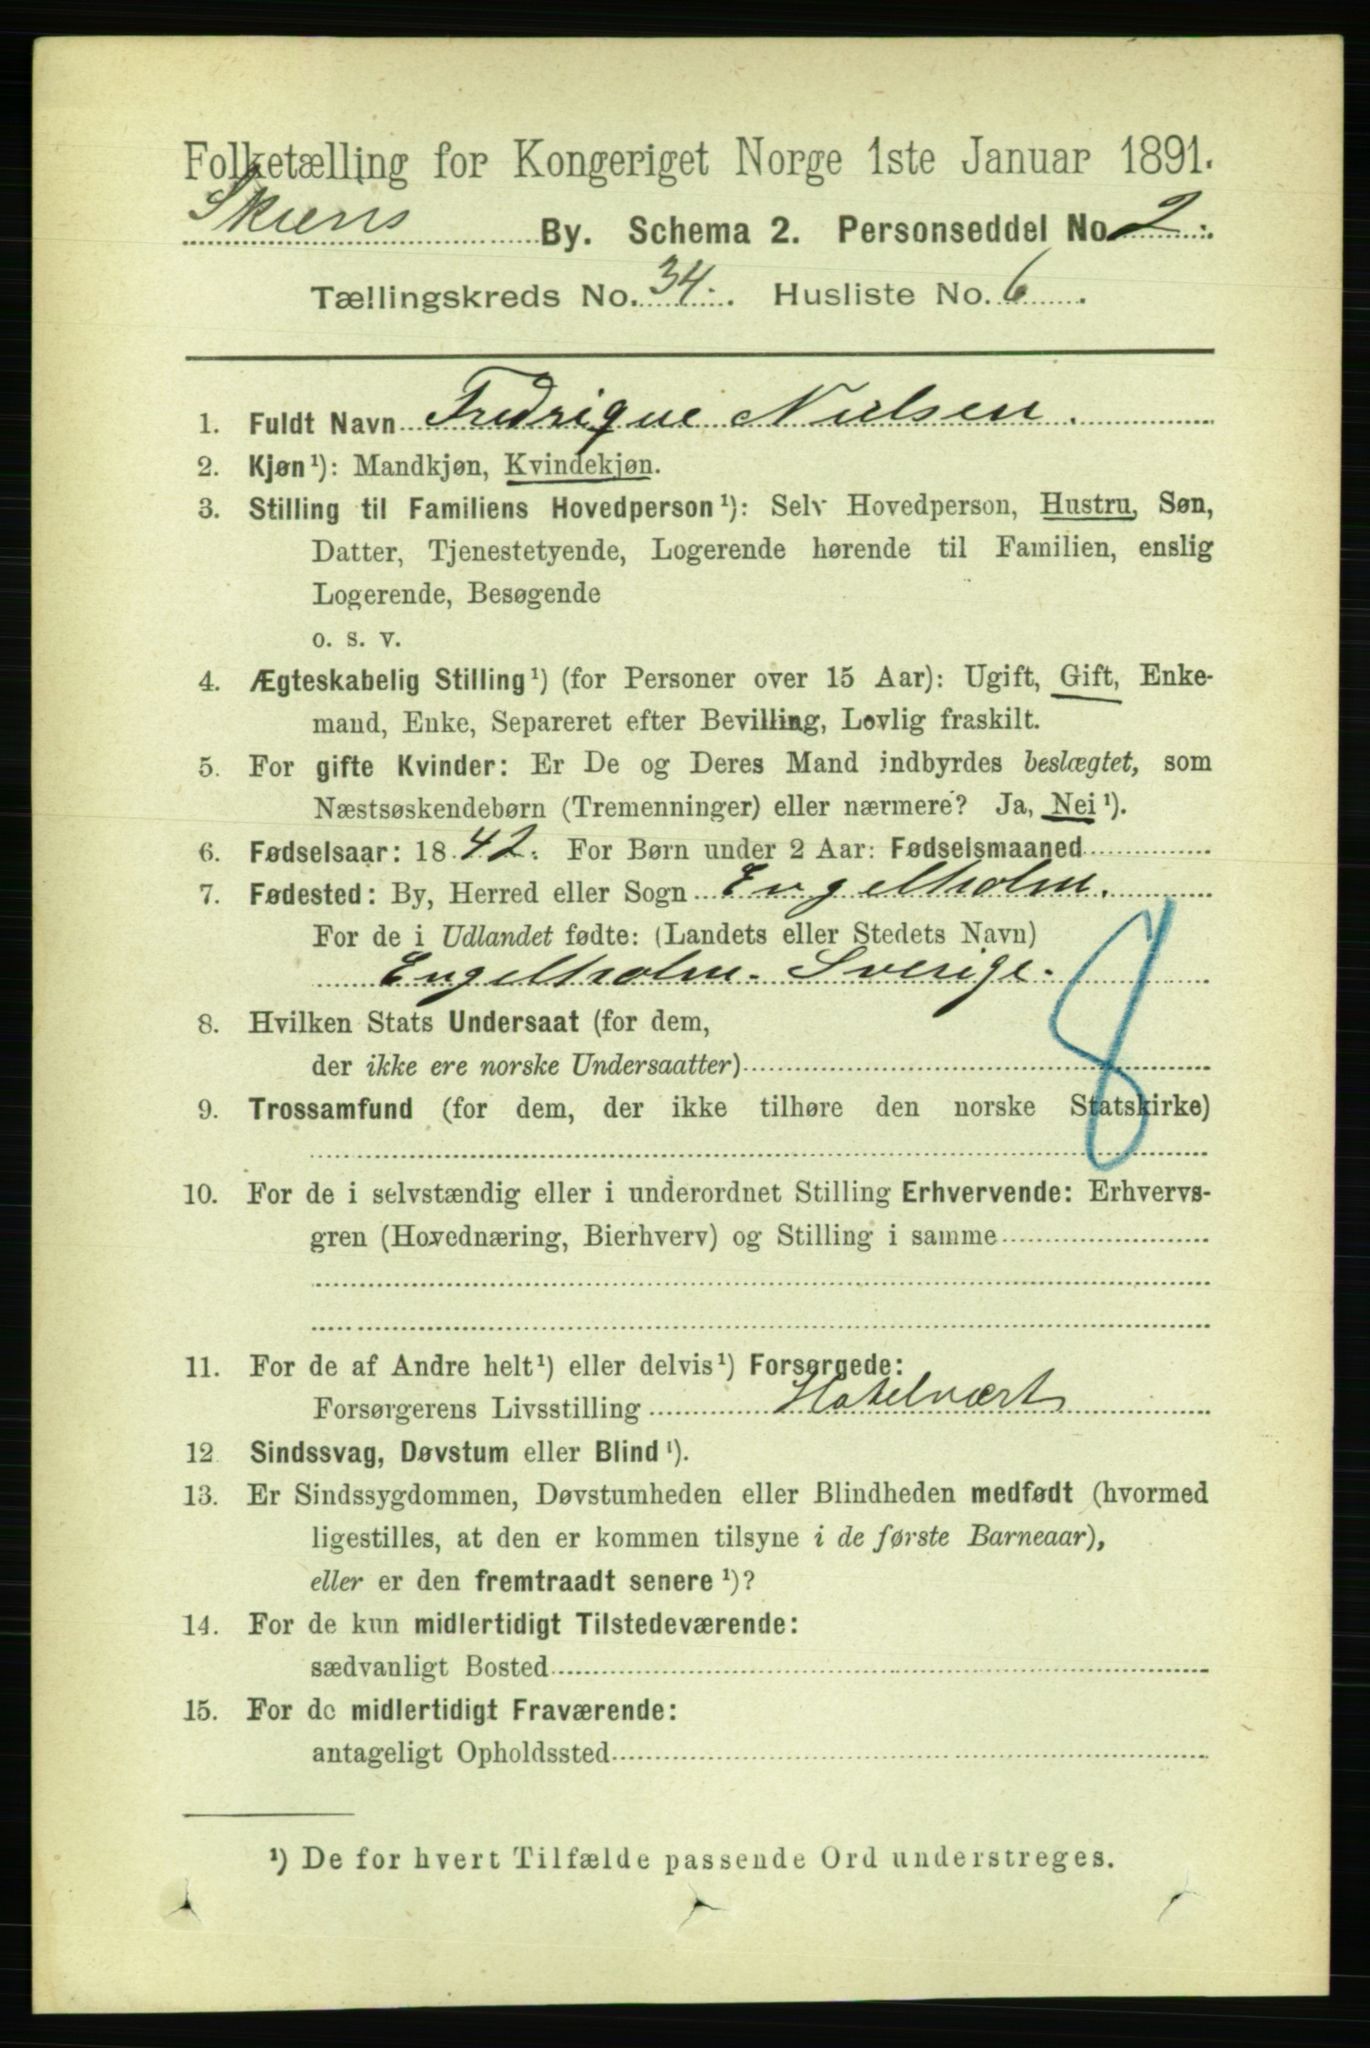 Folketælling for Kongeriget Norge 1ste Januar 1891.
Skiens By. Schema 2. Personseddel No. 2.
Tællingskreds No. 34. Husliste No. 6.
1. Fuldt Navn Fredrique Nielsen.
2. Kjøn¹): Mandkjøn, Kvindekjøn.
3. Stilling til Familiens Hovedperson¹): Selv Hovedperson, Hustru, Søn,
Datter, Tjenestetyende, Logerende hørende til Familien, enslig
Logerende, Besøgende
o. s. v.
4. Ægteskabelig Stilling¹) (for Personer over 15 Aar): Ugift, Gift, Enke-
mand, Enke, Separeret efter Bevilling, Lovlig fraskilt.
5. For gifte Kvinder: Er De og Deres Mand indbyrdes beslægtet, som
Næstsøskendebørn (Tremenninger) eller nærmere? Ja, Nei¹).
6. Fødselsaar: 1842. For Børn under 2 Aar: Fødselsmaaned
7. Fødested: By, Herred eller Sogn Engelholm.
For de i Udlandet fødte: (Landets eller Stedets Navn)
Engelholm. Sverige.
8
8. Hvilken Stats Undersaat (for dem,
der ikke ere norske Undersaatter)
9. Trossamfund (for dem, der ikke tilhøre den norske Statskirke)
10. For de i selvstændig eller i underordnet Stilling Erhvervende: Erhvervs-
gren (Hovednæring, Bierhverv) og Stilling i samme
11. For de af Andre helt¹) eller delvis¹) Forsørgede:
Forsørgerens Livsstilling Hotelvært
12. Sindssvag, Døvstum eller Blind¹).
13. Er Sindssygdommen, Døvstumheden eller Blindheden medfødt (hvormed
ligestilles, at den er kommen tilsyne i de første Barneaar),
eller er den fremtraadt senere¹)?
14. For de kun midlertidigt Tilstedeværende:
sædvanligt Bosted
15. For de midlertidigt Fraværende:
antageligt Opholdssted
¹) De for hvert Tilfælde passende Ord understreges.